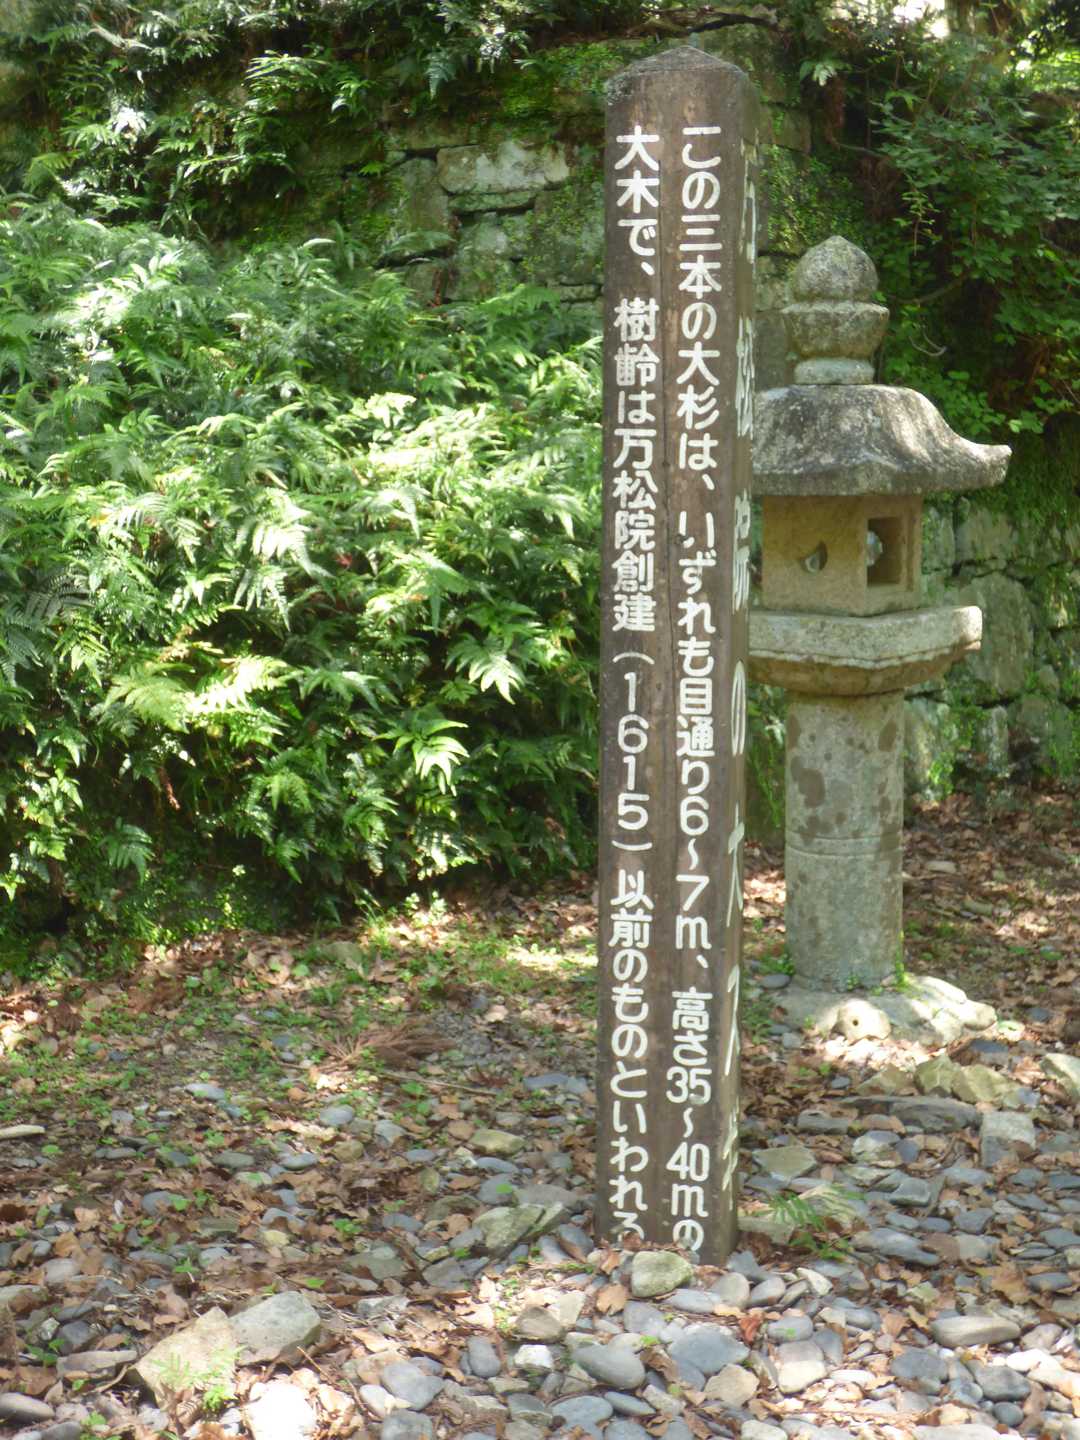 この三本の大杉は、いずれも目通り6〜7m、高さ35〜40mの
大木で、樹齢は万松院創建（1615）以前のものといわれる
万松院の大スギ